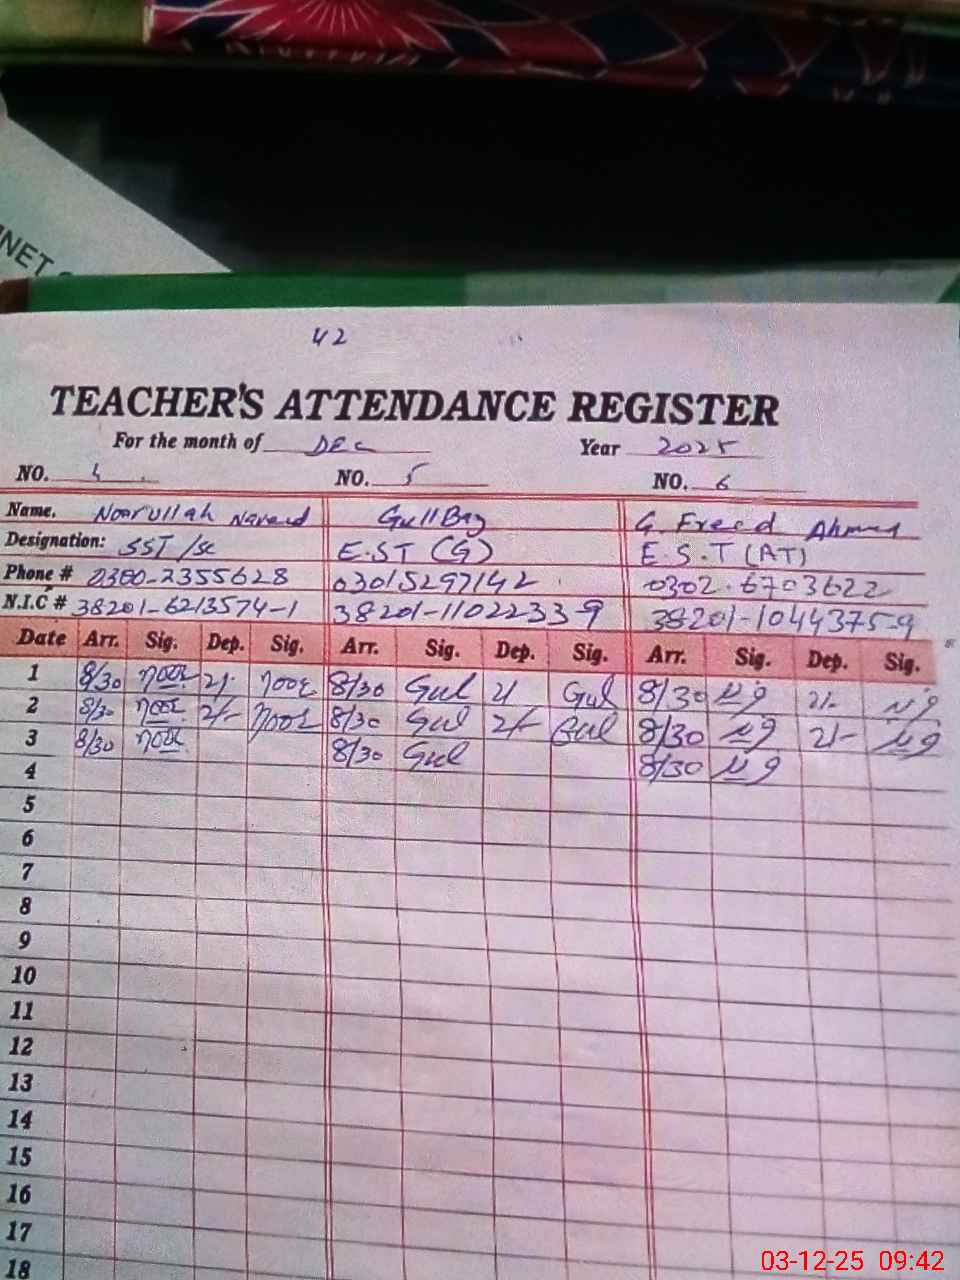 INET
42
TEACHER'S ATTENDANCE REGISTER
For the month of DEC Year 2025
NO. 4 NO. 5 NO. 6
Name. Noorullah Naveed Gull Baz G Freed Ahmed
Designation: SST/SC E.ST (G) E.S.T (AT)
Phone # 0300-2355628 03015297142 0302.6703622
N.I.C # 38201-6213574-1 38201-1102233-9 38201-1044375-9
Date Arr. Sig. Dep. Sig. Arr. Sig. Dep. Sig. Arr. Sig. Dep. Sig.
1 8/30 noor 2/- noor 8/30 Gul 2/ Gul 8/30 2/-
2 8/30 noor 2/- noor 8/30 Gul 2/- Gul 8/30 2/-
3 8/30 noor 8/30 Gul 8/30
4
5
6
7
8
9
10
11
12
13
14
15
16
17
18
03-12-25 09:42